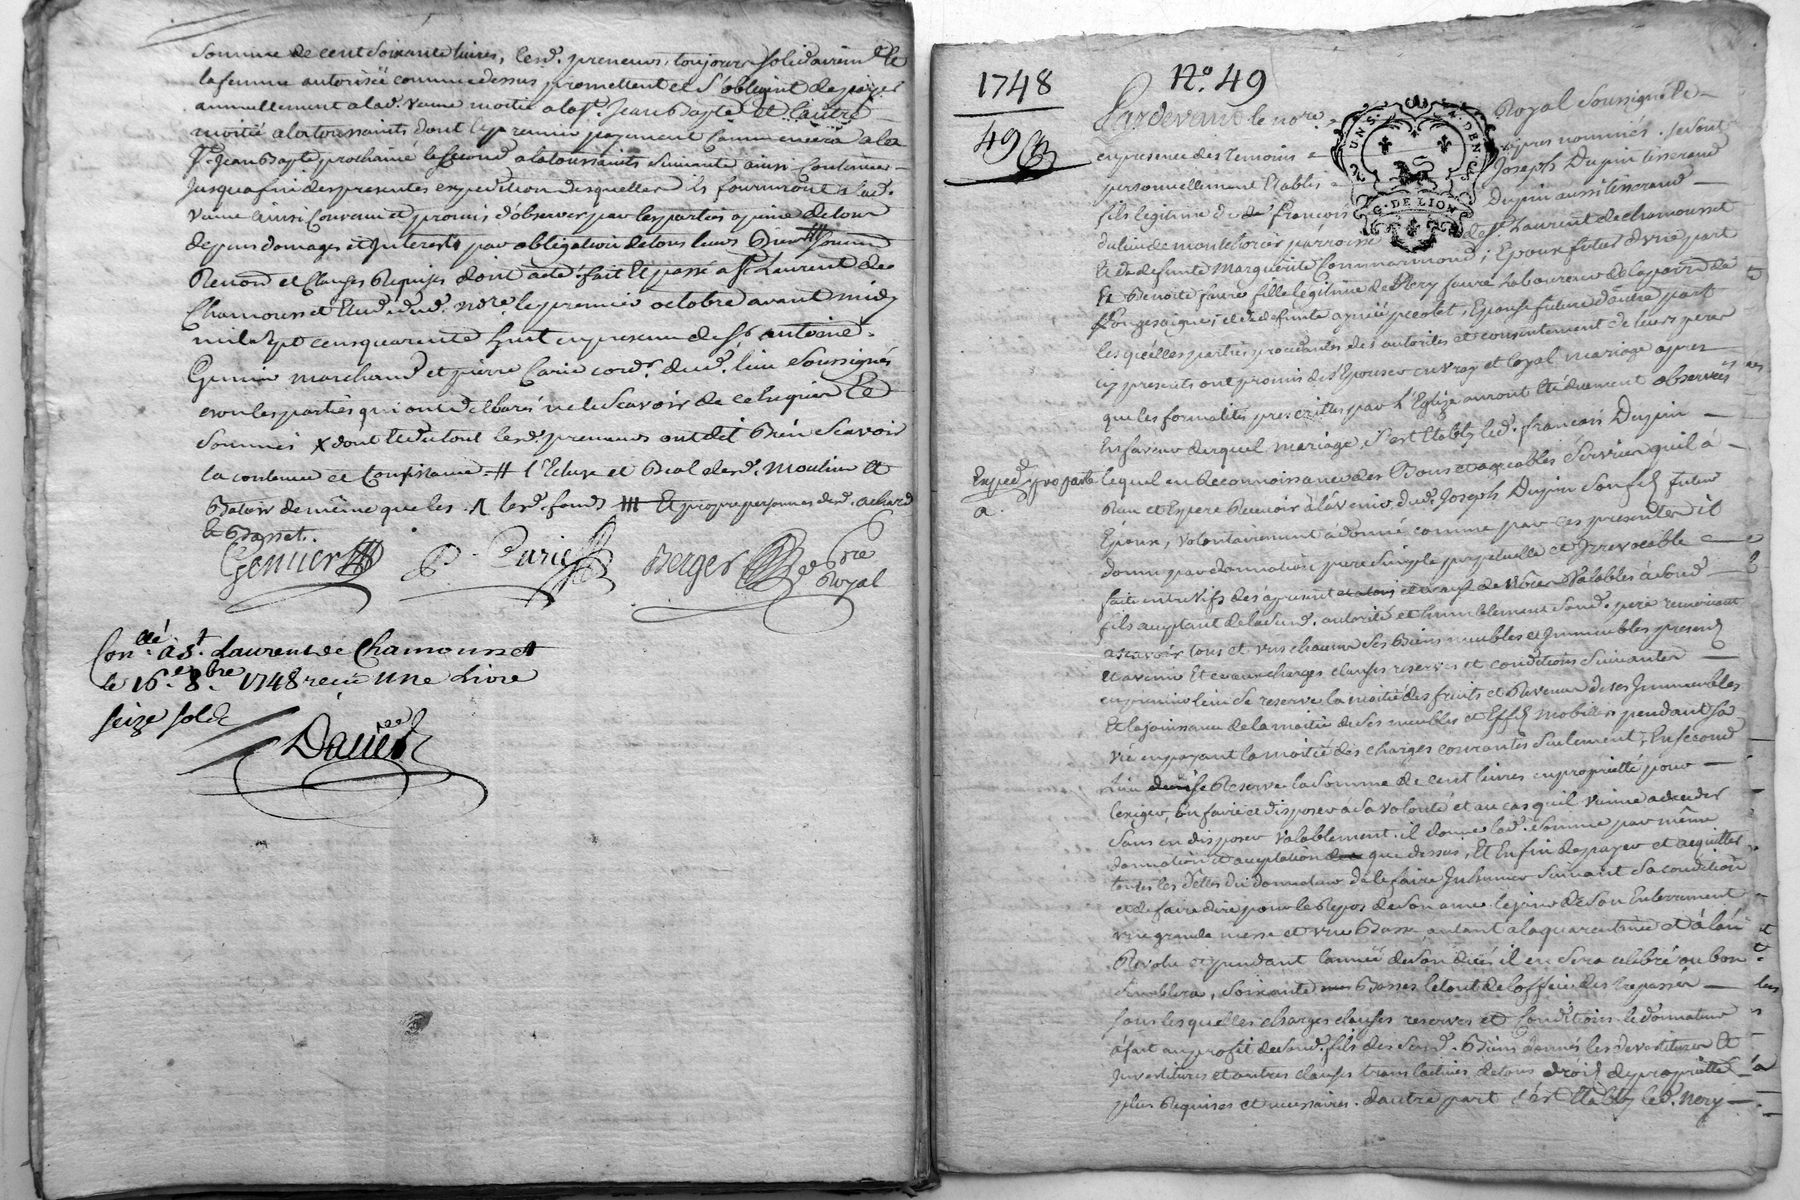 somme de cent soixante livres, lesd. preneurs, toujours solidairemt et
la femme autorisée comme dessus, promettent et s'obligent de payer
annuellement a lad. veuve moitié a la st. jean Bapte et l'autre
moitié a la toussaints dont le premier payement commencera a la
st. jean Bapte prochaine le second a la toussaints suivante ainsi continuer
jusqua fin des presentes expedition desquelles ils fourniront a lad.
veuve ainsi convenu et promis d'observer par les parties a peine de tous
depens domages et interests par obligation de tous leurs Biens
Renon. et Clauses Requises dont acte fait et passé a st Laurent de
Chamousset Etude dud. nore. le premier octobre avant midy
mil sept cens quarante huit en presence de sr. antoine
Genier marchand et pierre Carie cord. dud. lieu soussignés
non les parties qui ont declarés ne le scavoir de ce enquis et
sommés x dont et du tout lesd. preneurs ont dit Bien scavoir
la contenue et Consistance # l'Ecluse et Beal desd. moulin et
Batoir de même que les Λ lesd. fonds et propre personnes desd. achard
et Basset.
Genier P. Carie Berger nre
Royal
Conllé a St. Laurent de Chamousset
le 16e 8bre 1748 reçu une livre
seize sols
1748
No. 49
49
Pardevant le nore. Royal soussigné et
en presence des temoins apres nommés. se sont
personnellement Etablis Joseph Dupin tisserand
fils legitime de François Dupin aussi tisserand
du lieu de parroisse de st. Laurent de chamousset
et de defunte Marguerite Commarmond; Epoux futur d'une part
Et Benoite faure fille legitime de Nery faure Laboureur de la parr. de
Longesaigne, et de defunte Epouse future d'autre part
lesquelles parties procedantes des autorités et consentement de leurs peres
icy presents ont promis de s'Epouser en vray et loyal mariage apres
que les formalités prescrittes par l'Eglise auront été dument observées
En faveur duquel mariage, s'est Etably led. françois Dupin
Exped. pro parte lequel en Reconnoissance des Bons et agreables services quil à
Reçu et Espere Recevoir à l'avenir, dud. Joseph Dupin son fils futur
Epoux, volontairement à donné comme par ces presentes il
donne par donnation pure simple perpetuelle et Irrevocable
faite entre vifs des à present et de valables à sond
fils acceptant de lad. autorité et humblement sond. pere remerciant
ascavoir tous et uns chacuns ses Biens meubles et Immeubles presents
et avenir Et ce aux charges clauses reserves et conditions suivantes
en premier lieu se reserve la moitié des fruits et Revenus de ses Immeubles
Et la jouissance de la moitié de ses meubles et Effets mobiliers pendant sa
vie en payant la moitié des charges courantes seulement; En second
Lieu se Reserve la somme de cent livres en proprietté pour
l'exiger, en faire et disposer a sa volonté et au cas quil vienne a deceder
sans en disposer valablement. il donne lad. somme par même
donnation et acceptation que dessus, Et Enfin de payer et acquitter
toutes les dettes du donnateur de le faire Inhumer suivant sa condition
et de faire dire pour le Repos de son ame le jour de son Enterrement
une grande messe et une Basse, autant a la quarentaine et à l'an
Revolu et pendant l'année de son décés il en sera celebré ou bon
semblera, soixante Basses le tout de l'office des trepassés
sous lesquelles charges clauses reserves et Conditions le donnateur
à fait au profit de sond. fils des sd. Biens donnés les devestitures Et
Investitures et autres clauses translatives de tous droits de proprietté
plus Requises et necessaires. d'autre part s'est Etably led. Nery